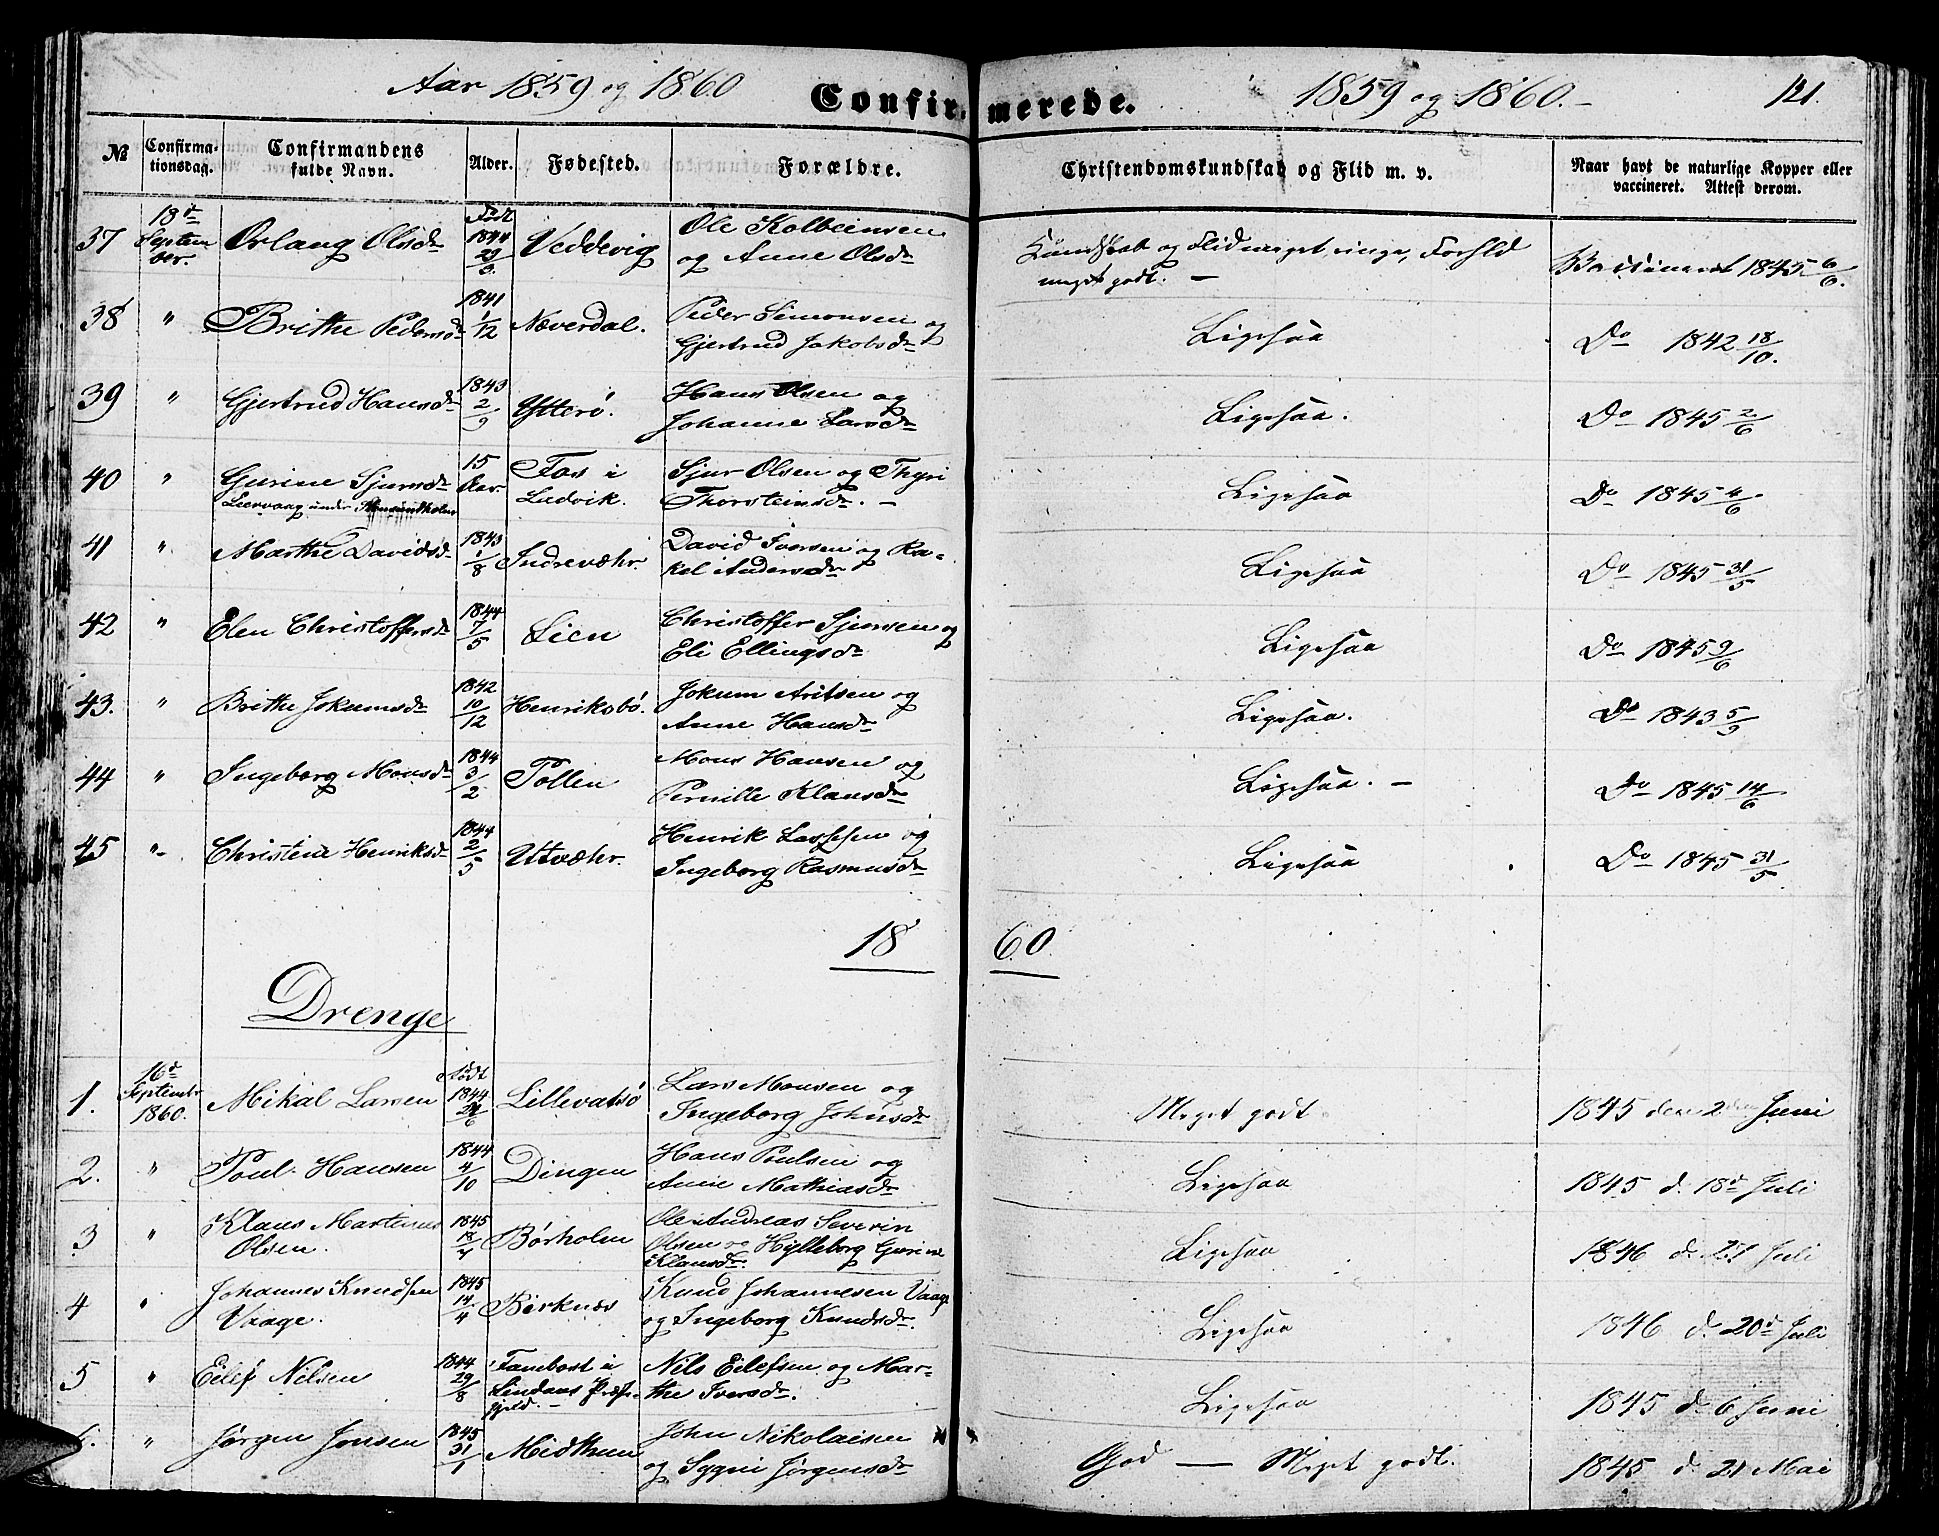 Aar 1859 og 1860
Confirmerede.
1859 og 1860.
121.
№
Confirmationsdag.
Confirmandens fulde Navn.
Alder.
Fødested.
Forældre.
Christendomskundskab og Flid m. v.
Naar havt de naturlige Kopper eller vaccineret. Attest derom.
37 18d September. Orlaug Olsdr Født 1844 Veddevig Ole Kolbeinsen og Anne Olsdr Kundskab og Flid meget ringe, Forhld meget godt. — Vaccineret 1845 6/6.
38 " Brithe Pedersdr 1841 1/12 Næverdal. Peder Simonsen og Gjertrud Jakobsdr Ligesaa Do 1842 18/10.
39 " Gjertrud Hansdr 1843 2/9 Ytterø. Hans Olsen og Johanne Larsdr Ligesaa. Do 1845 2/6
40 " Gurine Sjursdr 15 Aar. Fos i Ludvik. Sjur Olsen og Thyri Thorsteinsdr. — Ligesaa Do 1845 4/6
Liervaag under
41 " Marthe Davidsdr 1843 1/8 Indrevæhr David Iversen og Rakel Andersdr Ligesaa Do 1845 31/5
42 " Elen Christoffersdr 1844 7/5 Lien Christoffer Sjursen og Eli Ellingsdr Ligesaa Do 1845 9/6
43. " Brithe Jokumsdr 1842 10/12 Henriksbø. Jokum Aritsen og Anne Hansdr Ligesaa. Do 1843 5/9
44 " Ingeborg Monsdr 1844 3/2 Tollen Mons Hansen og Pernille Klausdr Ligesaa. — Do 1845 14/6
45 " Christine Henriksdr 1844 2/5 Utvæhr. Henrik Lassesen og Ingeborg Rasmusdr Ligesaa Do 1845 31/5
1860.
Drenge
1. 16d Septembr 1860. Mikal Larsen Født 1844 Lillevatsø Lars Monsen og Ingeborg Johnsdr Meget godt 1845 den 2den Juni
2. " Poul Hansen 1844 4/10 Dingen Hans Poulsen og Anne Mathiasdr Ligesaa 1845 d. 18d Juli
3 " Klaus Martinus Olsen. 1845 18/4 Børholm Ole Andreas Severin Olsen og Hylleborg Gurine Klausdr. Ligesaa 1846 d. 27 Juli
4 " Johannes Knudsen Vaage. 1845 14/4 Birknes Knud Johannesen Vaage og Ingeborg Knudsdr. Ligesaa 1846 d. 20d Juli
5 " Eilef Nilsen 1844 29/8 Fanebost i Lindaas Præstegjeld. — Nils Eilefsen og Marthe Iversdr. Ligesaa 1845 d. 6 Juni
6. " Jørgen Jonsen 1845 31/1 Midthun John Nikolaisen og Sygni Jørgensdr God — Meget godt. 1845 d 21 Mai